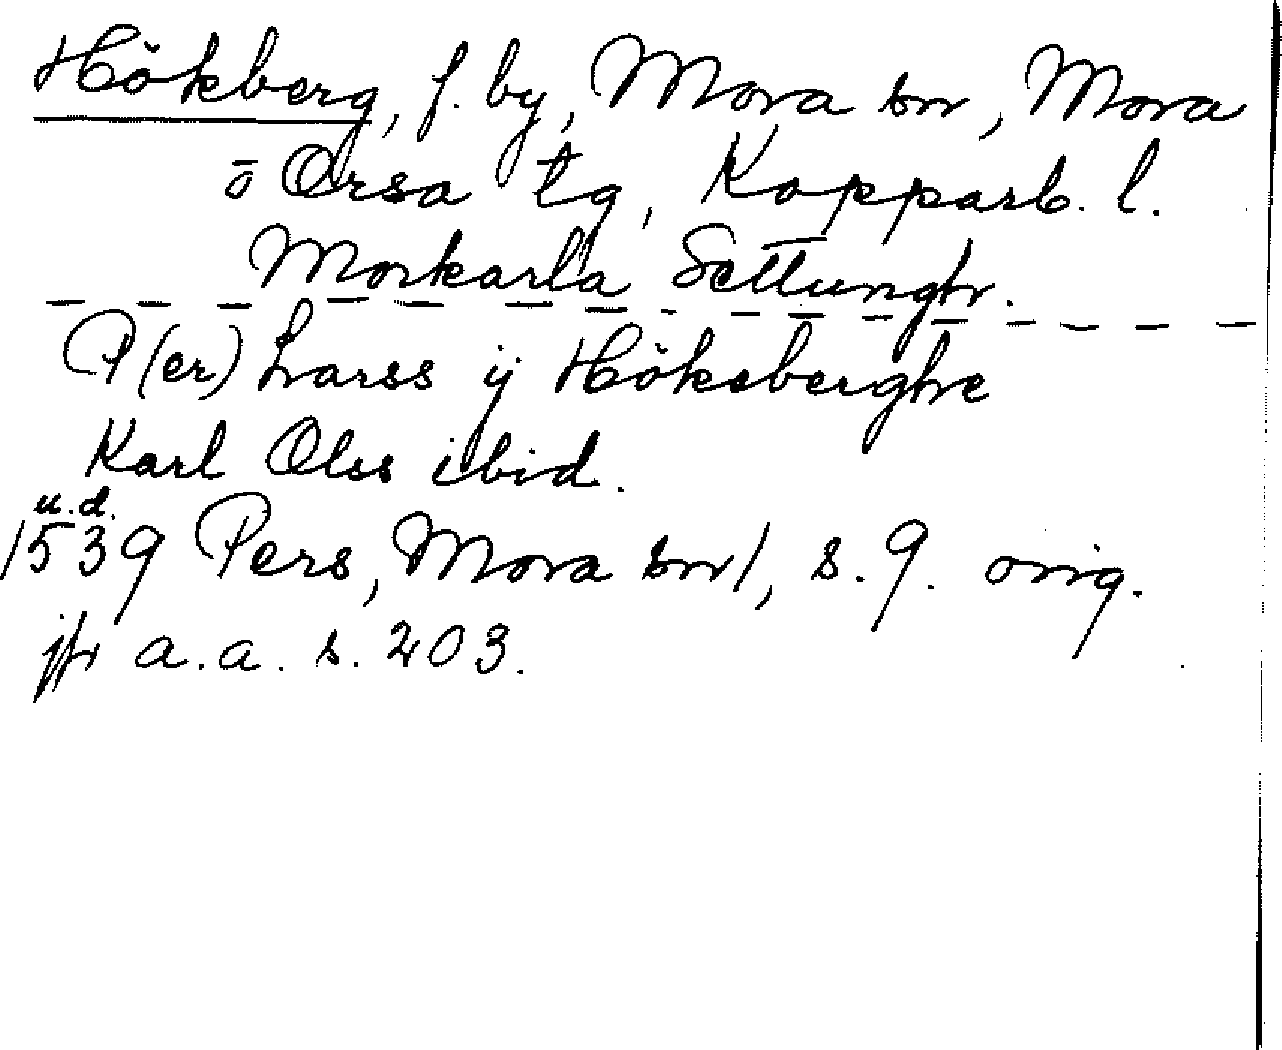 Hökberg, f. by, Mora sn, Mora
o Orsa tg, Kopparb. l.
Morkarla Settungh.
P(er) Larss ij Hökeberghe
Karl Olss ibid.
u.d.
1539 Pers, Mora sn/, s. 9. orig.
jfr a.a. s. 203.